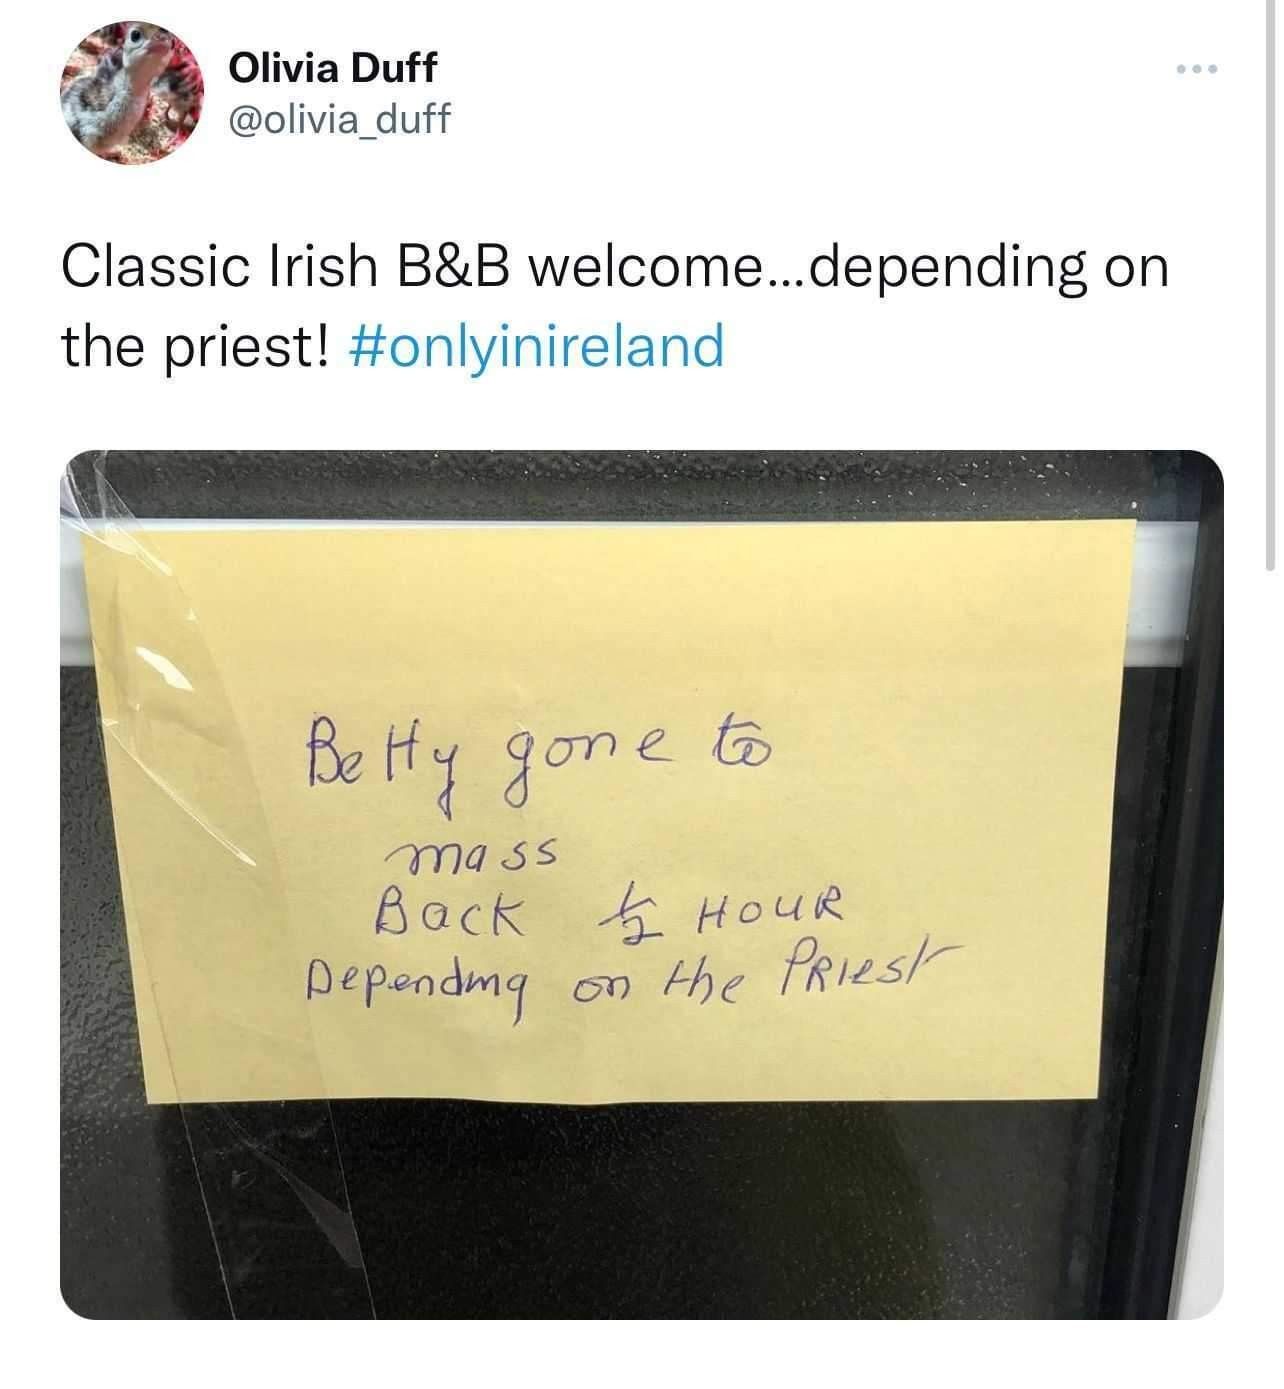 Olivia Duff
@olivia_duff
Classic Irish B&B welcome...depending on
the priest! #onlyinireland
Betty gone to
mass
Back ½ HOUR
Depending on the PRIEST